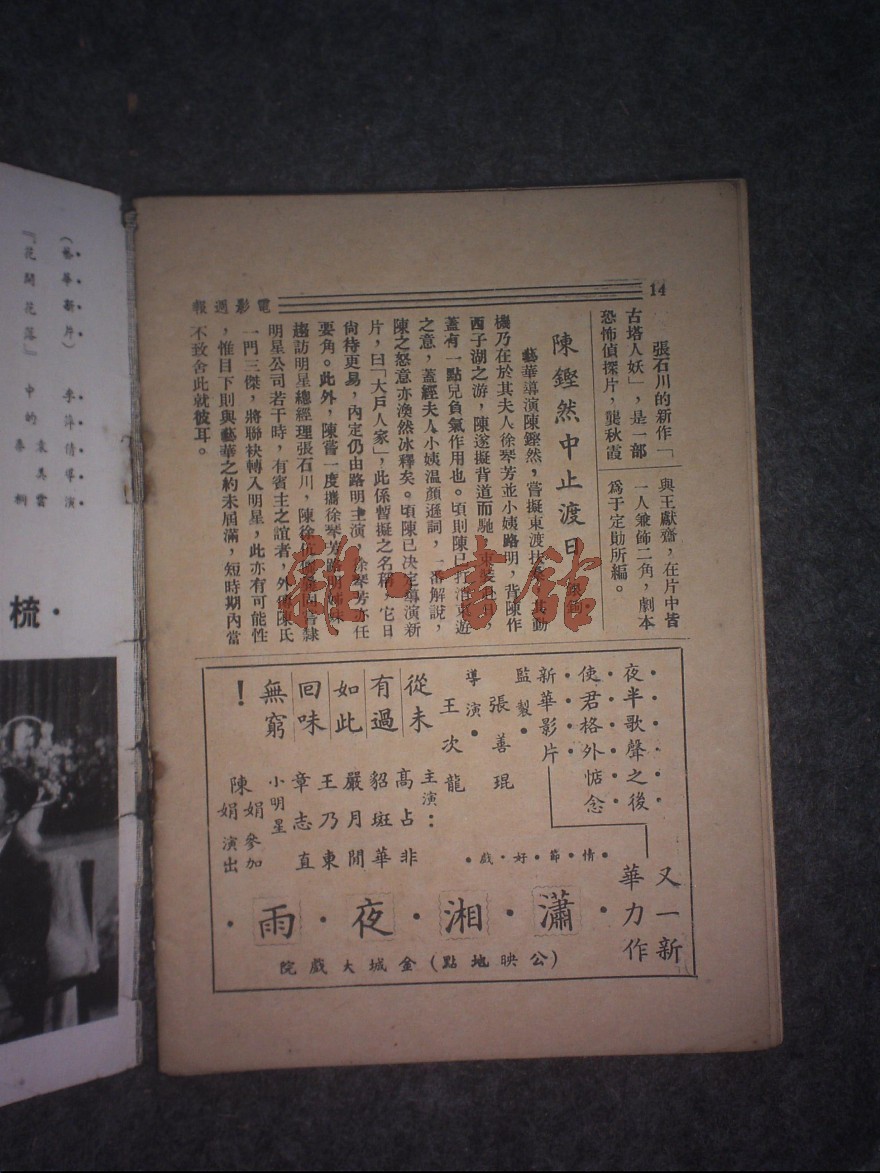 14
電影週報
張石川的新作「
古塔人妖」，是一部
恐怖偵探片，龔秋霞
與王獻齋，在片中皆
一人兼飾二角，劇本
爲于定勛所編。
陳鏗然中止渡日
藝華導演陳鏗然，嘗擬東渡扶桑，其動
機乃在於其夫人徐琴芳並小姨路明，背陳作
西子湖之游，陳遂擬背道而馳，東裝赴日，
蓋有一點兒負氣作用也。頃則陳已打消東遊
之意，蓋經夫人小姨温顏遜詞，一番解說，
陳之怒意亦渙然冰釋矣。頃陳已决定導演新
片，曰「大戶人家」，此係暫擬之名稱，它日
尙待更易，內定仍由路明主演，徐琴芳亦任
要角。此外，陳嘗一度攜徐琴芳路明姊妹
趨訪明星總經理張石川，陳徐伉儷 隸
明星公司若干時，有賓主之誼者，外傳陳氏
一門三傑，將聯袂轉入明星，此亦有可能性
，惟目下則與藝華之約未屆滿，短時期內當
不致舍此就彼耳。
夜半歌聲之後
使君格外惦念
新華影片
又一新
華力作
監製・張善琨
導演・王次龍
主演：
高占非
貂斑華
嚴月閒
王乃東
章志直
小明星
陳娟娟參加演出
從未
有過
如此
回味
無窮
！
・情・節・好・戲・
・瀟・湘・夜・雨・
（公映地點）金城大戲院
（藝華新片）李萍倩導演
『花開花落』中的袁美雲
梳・
雜・書館